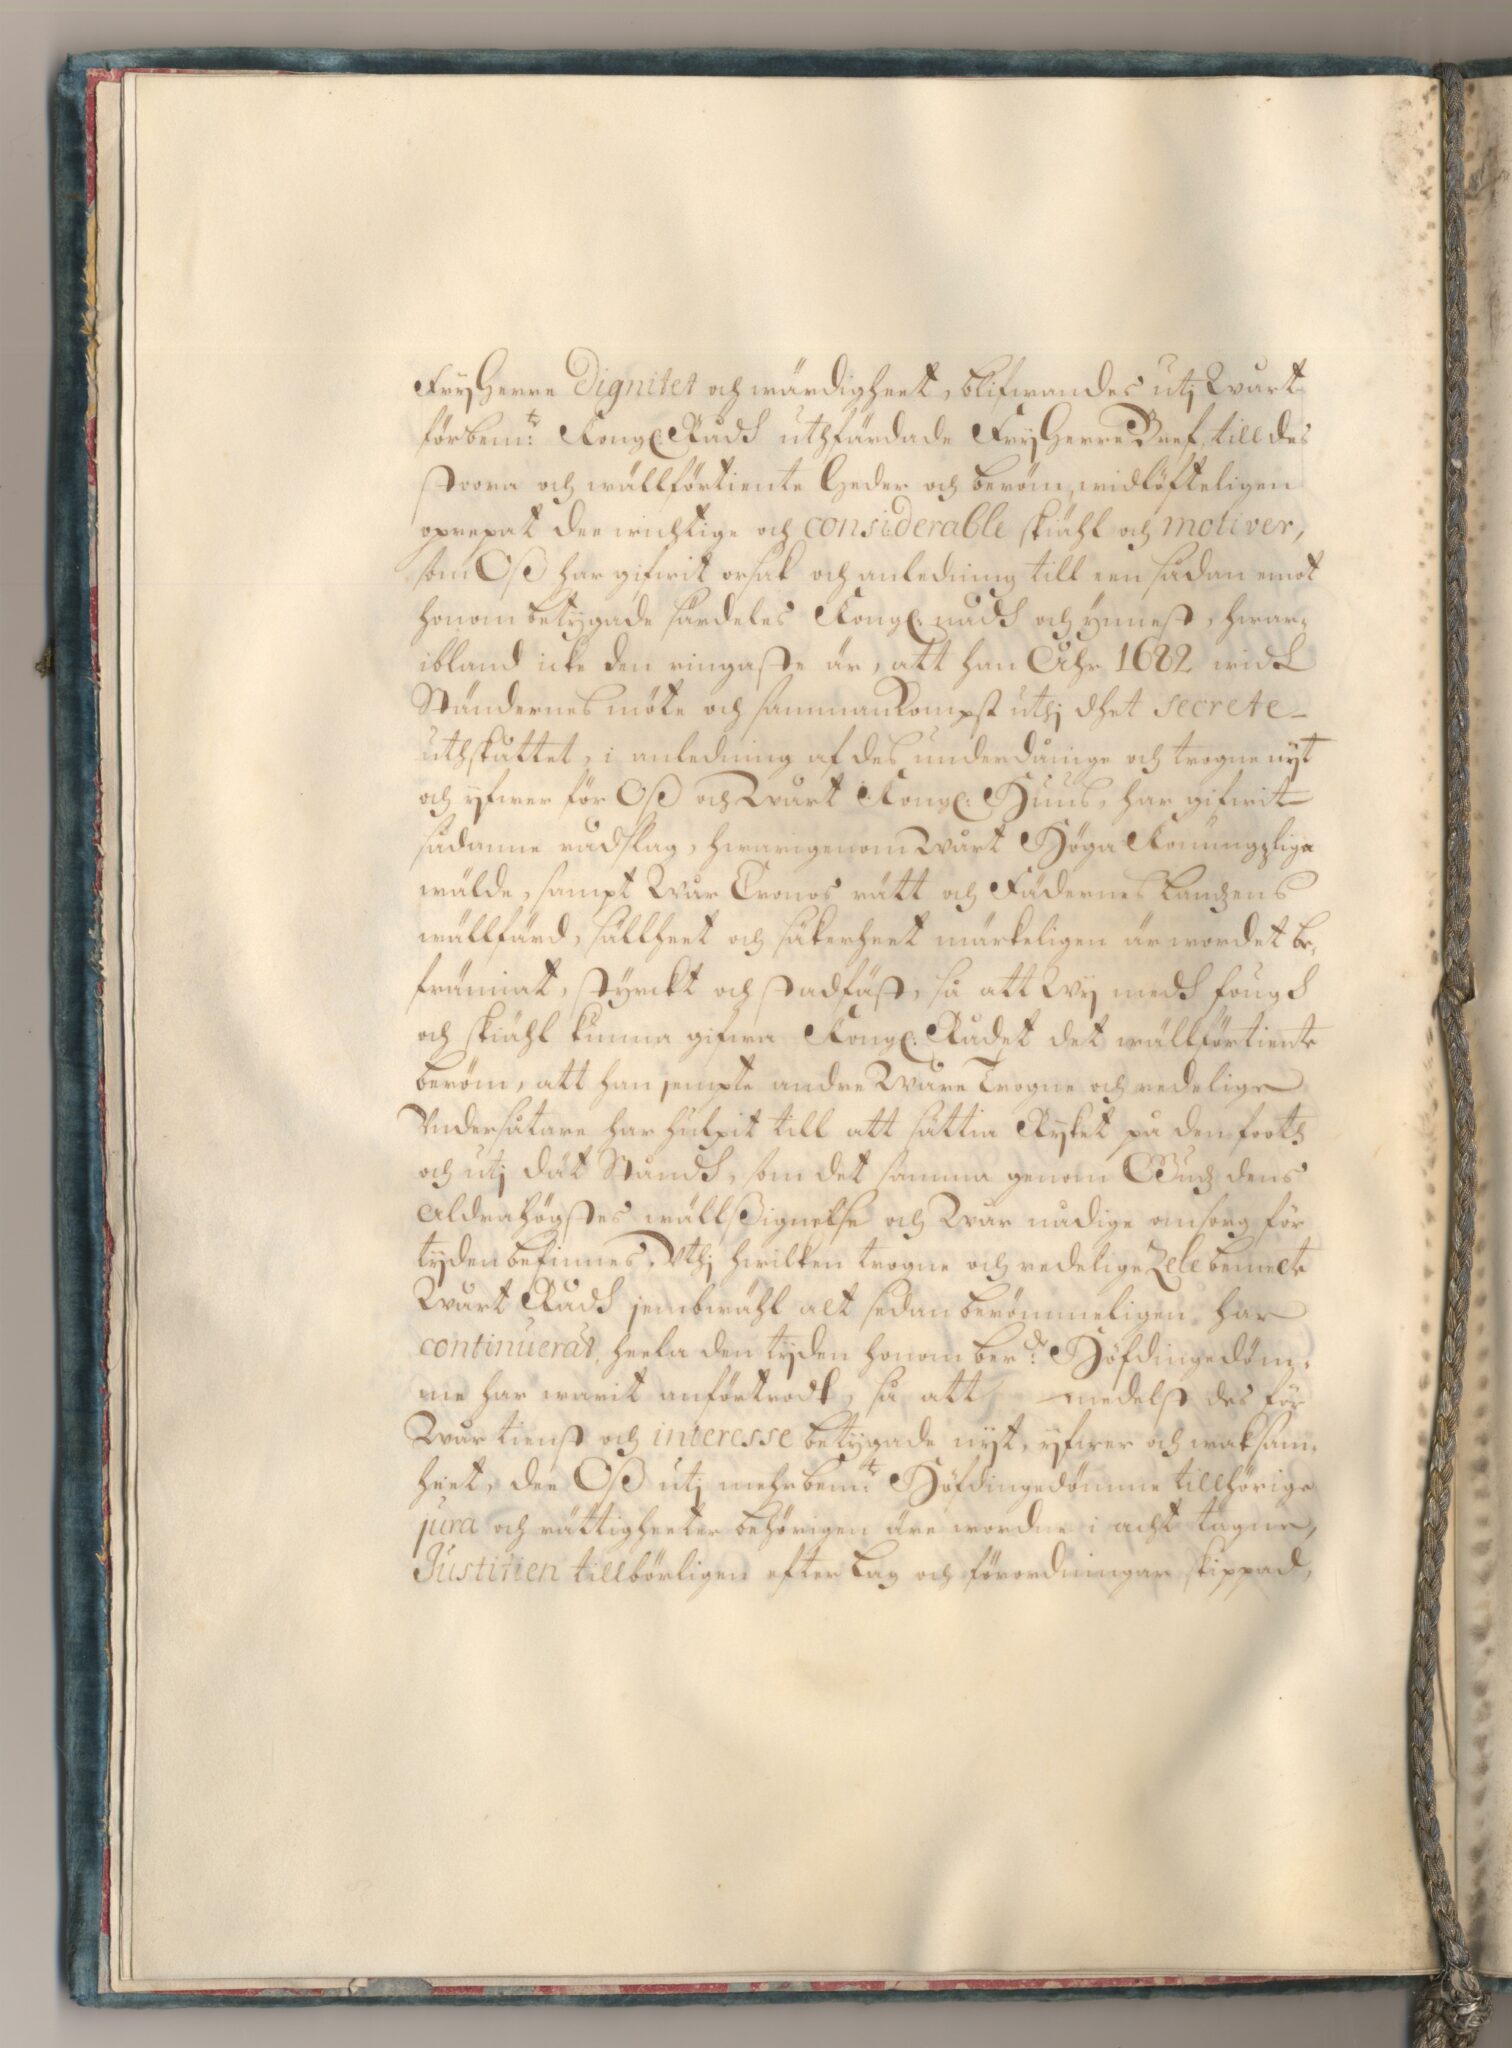 FryHerre Dignitet och wärdigheet, blifwandes utj Wart
förbem:te Kongl: Rådh uthfärdade FryHerre Bref, till des
stoora och wällförtiente heder och beröm, widlöffteligen
oprepat dee wichtige och considerable skiähl och motiver,
som Oß har gifwit orsak och anledning till een sådan emot
honom betygade särdeles Kongl: nådh och ynnest, hwar-
ibland icke den ringaste är, att han Åhr 1682 widh
Ständernes möte och sammankompst uthj dhet secrete
uthskåttet, i anledning af des underdånige och trogne nijt
och yfwer för Oß och Wårt Kongl: Huus, har gifwit
sådanne rådslag, hwarigenom Wårt Höga Konungzliga
wälde, sampt Wår Cronos rätt och Fäderneslandzens
wällfärd, sällheet och säkerheet märkeligen är wordet be-
främiat, styrckt och stadfäst, så att Wij medh foug
och skiähl kunna gifwa Kongl: Rådet det wällförtiente
beröm, att han jempte andre Wåre Trogne och redelige
Vndersåtare har hulpit till att sättia Ryket på den footh
och utj dät Ståndh, som det samma genom Gudz dens
Aldrahögstes wällsignelse och Wår nådige omsorg för
tyden befinnes. Vthj hwilken trogne och redelige Zele bemelte
Wårt Rådh jembwähl alt sedan berömmeligen har
continuerat, heela den tyden honom ber:de Höfdingedöm-
me har warit anförtrodt, så att medelst des för
Wår tienst och interesse betygade nijt, yfwer och waksam-
heet, dee Oß utj mehrbem:te Höfdingedömme tillhörige
jura och rättigheeter behörigen äre wordne i acht tagne,
Justitien tillbörligen efter Lag och förordningar skippad,